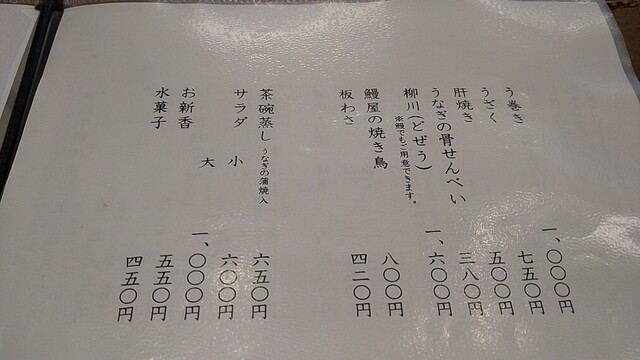 う巻き 一、〇〇〇円
うざく 七五〇円
肝焼き 五〇〇円
うなぎの骨せんべい 三八〇円
柳川(どぜう) 一、六〇〇円
※鰻でもご用意できます。
鰻屋の焼き鳥 八〇〇円
板わさ 四二〇円
茶碗蒸し うなぎの蒲焼入 六五〇円
サラダ 小 六〇〇円
大 一、〇〇〇円
お新香 五五〇円
水菓子 四五〇円